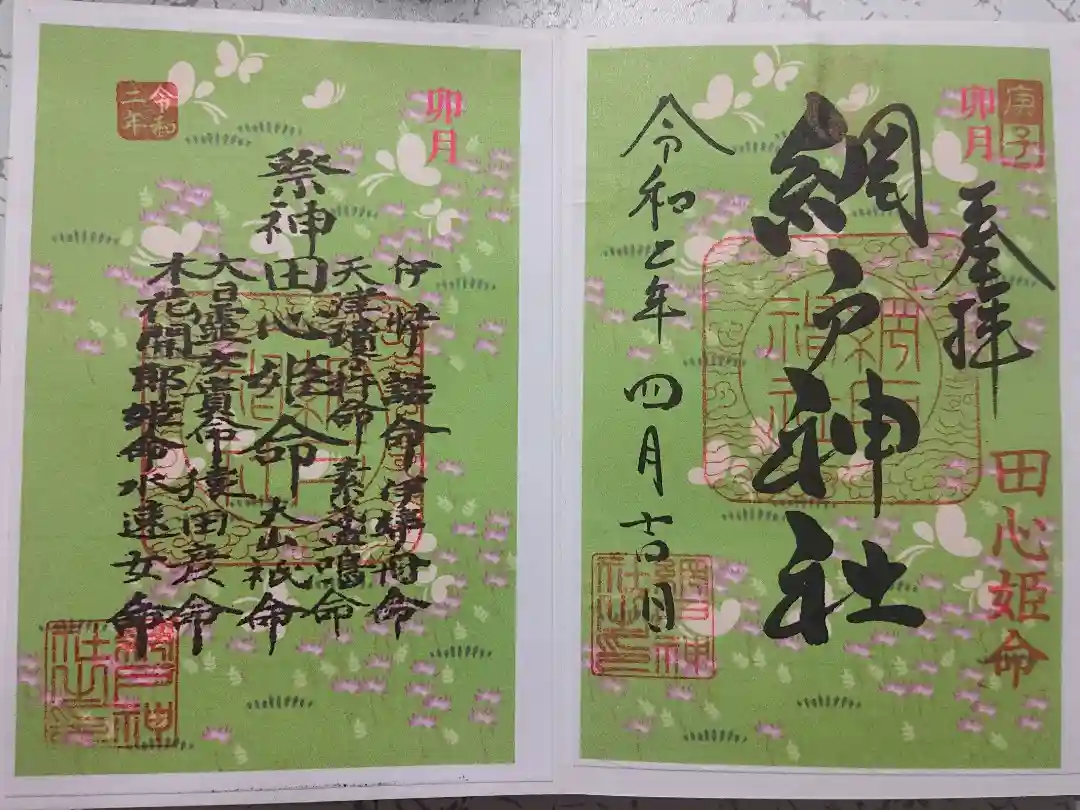 庚子
卯月
奉拝
田心姫命
網戸神社
網戸神社
令和二年四月吉日
網戸神社之印
卯月
伊弉諾命 伊弉冊命
天津瓊々杵命 素盞鳴命
祭神 田心姫命 大山祇命
大日孁女貴命 猿田彦命
木花開耶姫命 水速女命
令和二年
網戸神社之印